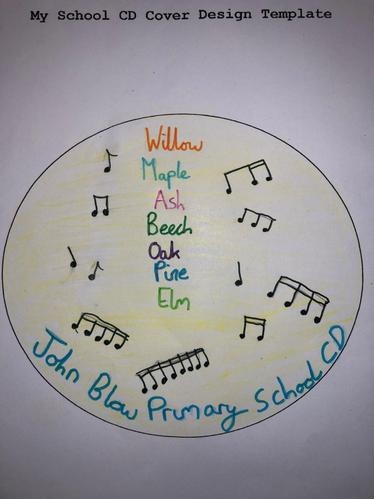 My School CD Cover Design Template
Willow
Maple
Ash
Beech
Oak
Pine
Elm
John Blow Primary School CD